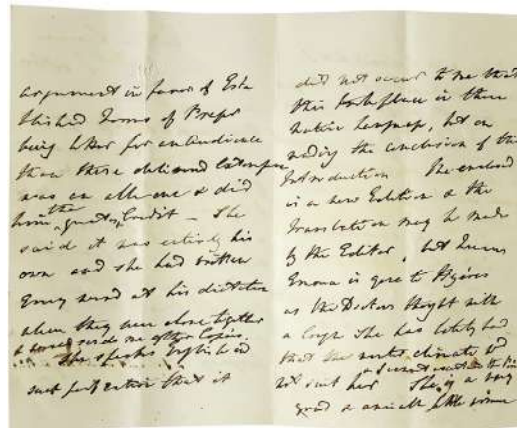 argument in favor of Esta
blished Forms of Prayr
being better for an Audience
than those delivered Extempore
was an able one & did
him the greatest Credit – She
said it was entirely his
own and she had written
Every word at his dictation
when they were alone together
& no one
She speaks English in
such perfection that it
did not occur to me that
this took place in their
native language, but on
reading the conclusion of the
Introduction The enclosed
is a new Edition & the
Translation may be made
by the Editor, but Queen
Emma is gone to Hyères
as the Doctors thought with
a cough She has lately had
that the winter climate
not suit her She is a very
good & amiable little